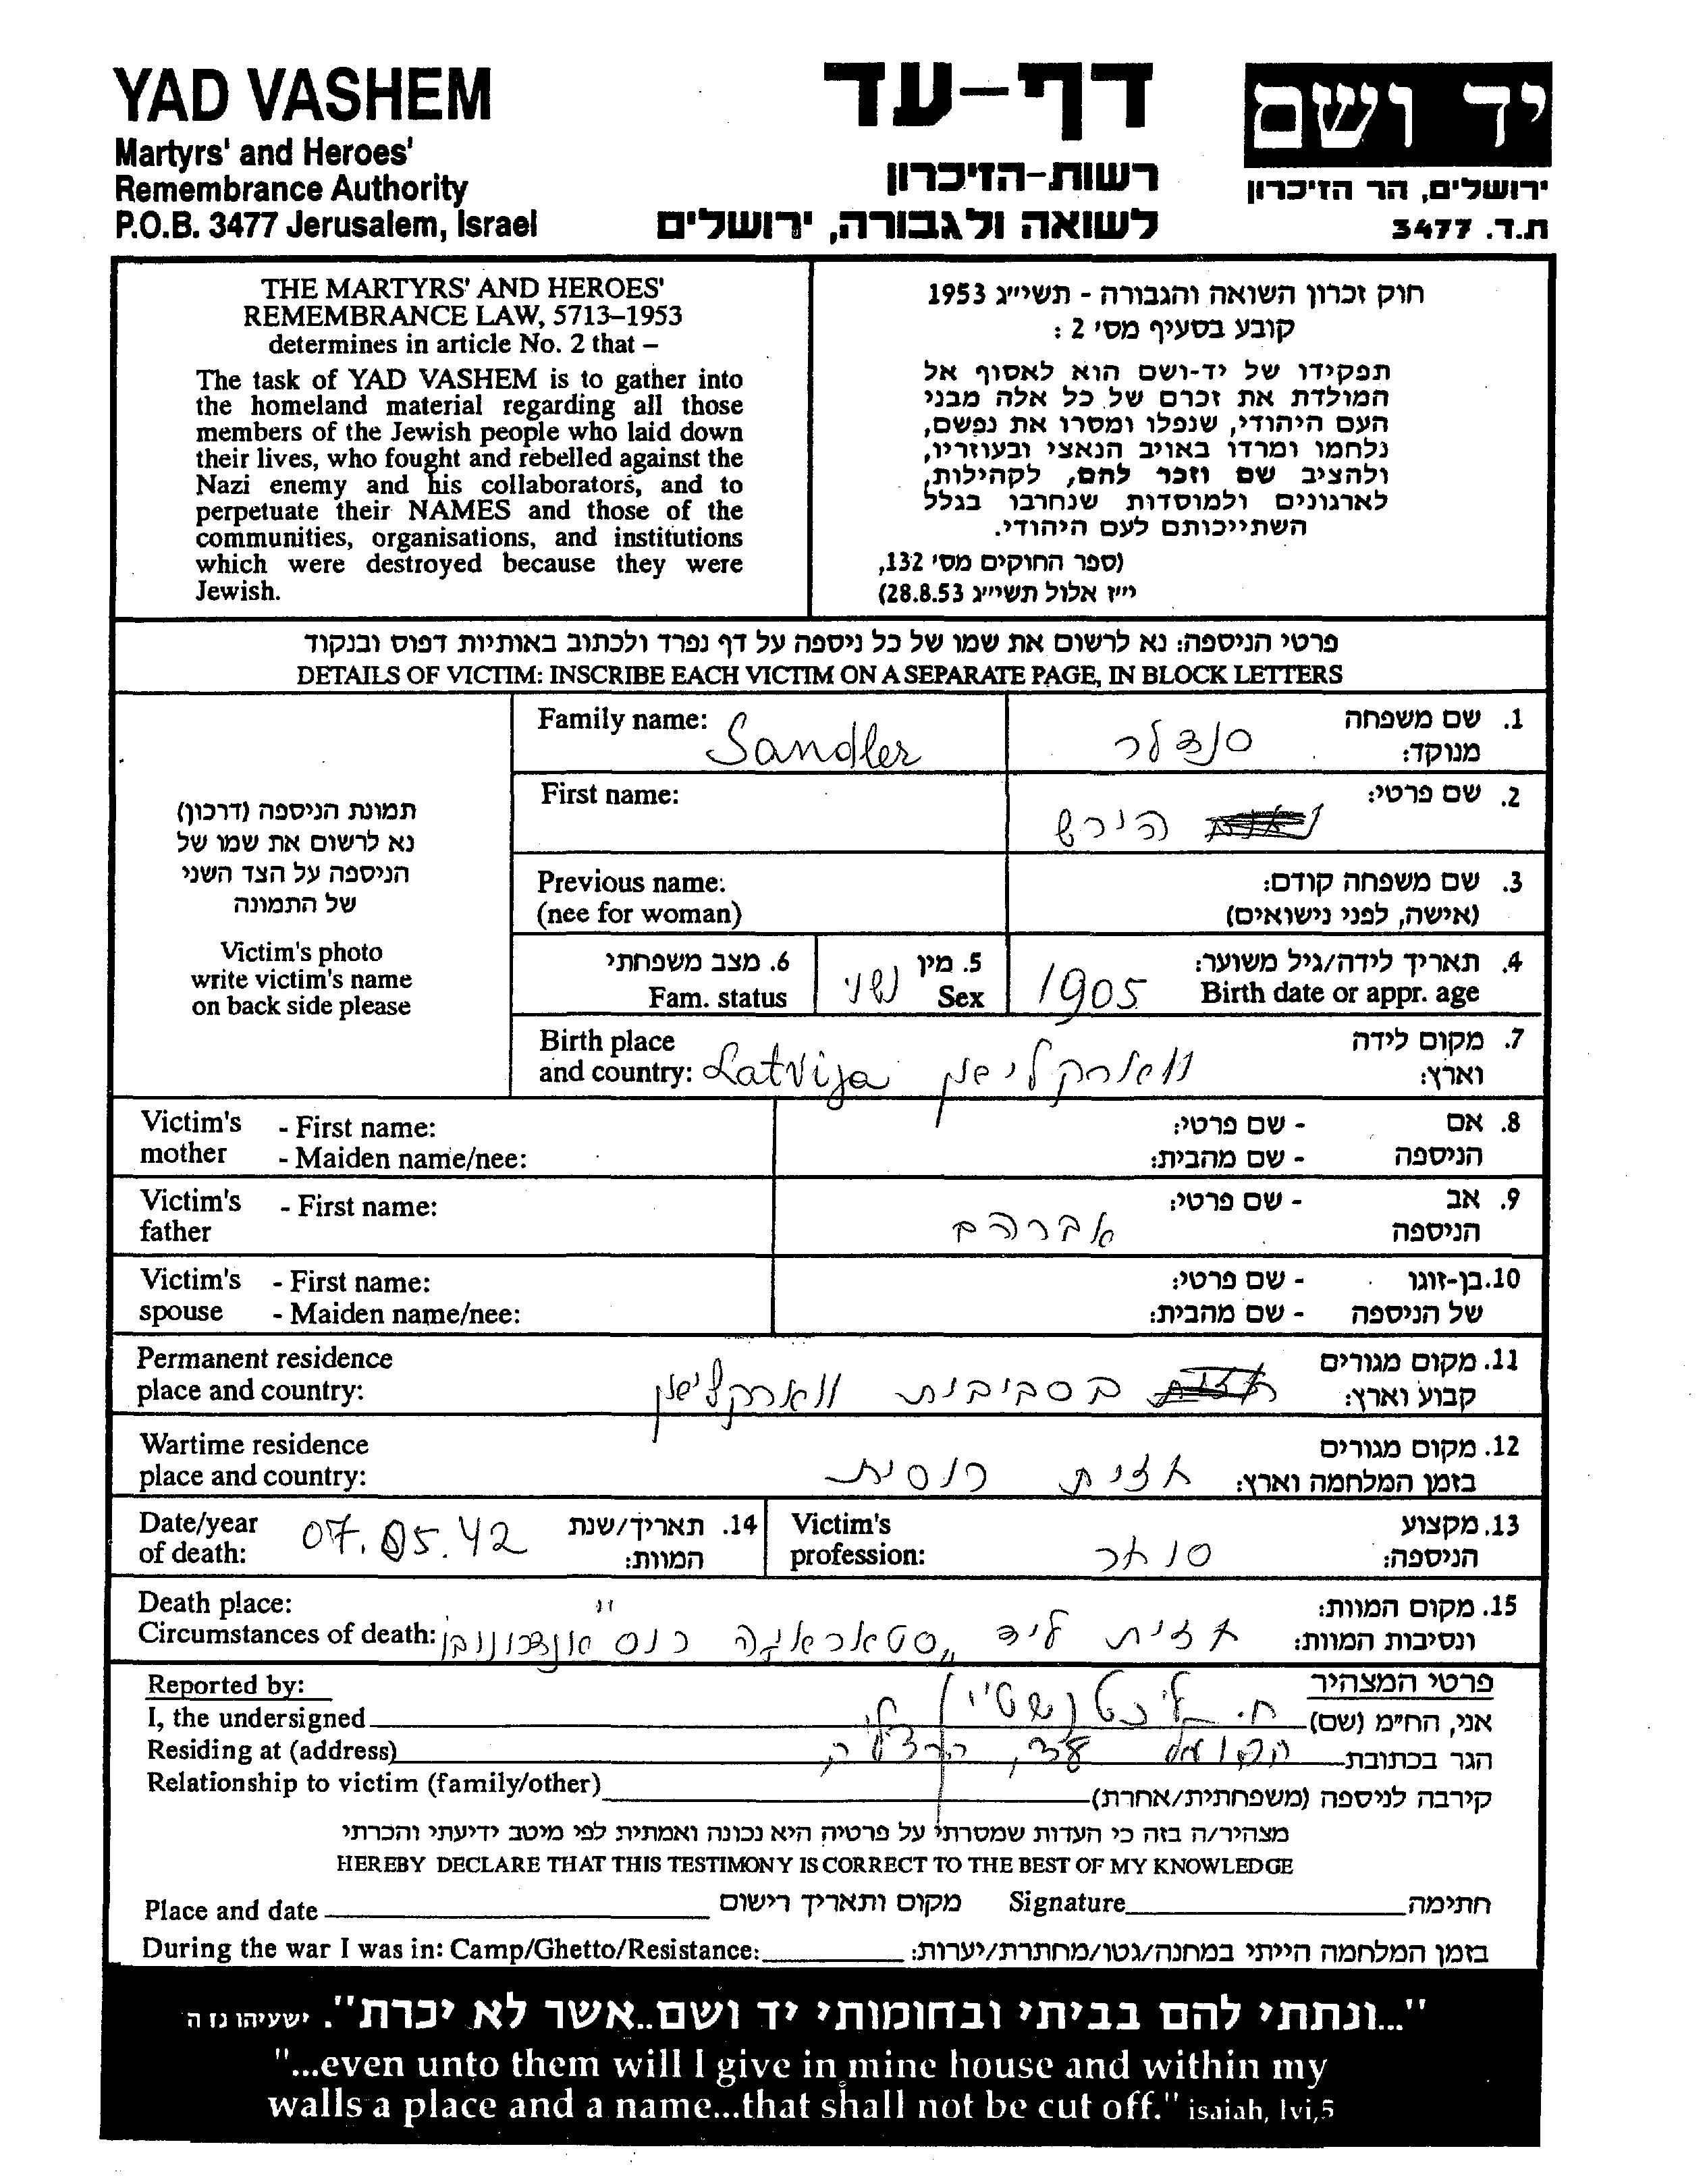 YAD VASHEM
Martyrs' and Heroes'
Remembrance Authority
P.O.B. 3477 Jerusalem, Israel
דף-עד
רשות-הזיכרון
לשואה ולגבורה, ירושלים
יד ושם
ירושלים, הר הזיכרון
ת.ד. 3477
THE MARTYRS' AND HEROES'
REMEMBRANCE LAW, 5713–1953
determines in article No. 2 that –
The task of YAD VASHEM is to gather into
the homeland material regarding all those
members of the Jewish people who laid down
their lives, who fought and rebelled against the
Nazi enemy and his collaborators, and to
perpetuate their NAMES and those of the
communities, organisations, and institutions
which were destroyed because they were
Jewish.
חוק זכרון השואה והגבורה - תשי"ג 1953
קובע בסעיף מס' 2 :
תפקידו של יד-ושם הוא לאסוף אל
המולדת את זכרם של כל אלה מבני
העם היהודי, שנפלו ומסרו את נפשם,
נלחמו ומרדו באויב הנאצי ובעוזריו,
ולהציב שם וזכר להם, לקהילות,
לארגונים ולמוסדות שנחרבו בגלל
השתייכותם לעם היהודי.
(ספר החוקים מס' 132,
י"ז אלול תשי"ג 28.8.53)
פרטי הניספה: נא לרשום את שמו של כל ניספה על דף נפרד ולכתוב באותיות דפוס ובנקוד
DETAILS OF VICTIM: INSCRIBE EACH VICTIM ON A SEPARATE PAGE, IN BLOCK LETTERS
תמונת הניספה (דרכון)
נא לרשום את שמו של
הניספה על הצד השני
של התמונה
Victim's photo
write victim's name
on back side please
Family name: Sandler
סנדלר
1. שם משפחה
מנוקד:
First name:
הירש
2. שם פרטי:
Previous name:
(nee for woman)
3. שם משפחה קודם:
(אישה, לפני נישואים)
6. מצב משפחתי
Fam. status
5. מין
Sex
4. תאריך לידה/גיל משוער:
Birth date or appr. age 1905
Birth place
and country: Latvija ווארקליאן
7. מקום לידה
וארץ:
Victim's mother - First name:
- Maiden name/nee:
8. אם הניספה - שם פרטי:
- שם מהבית:
Victim's father - First name:
9. אב הניספה - שם פרטי:
אברהם
Victim's spouse - First name:
- Maiden name/nee:
10. בן-זוגו של הניספה - שם פרטי:
- שם מהבית:
Permanent residence
place and country:
11. מקום מגורים
קבוע וארץ: בסביבות ווארקליאן
Wartime residence
place and country:
12. מקום מגורים
בזמן המלחמה וארץ: חזית רוסית
Date/year
of death: 07.05.42
14. תאריך/שנת
המוות:
Victim's
profession:
13. מקצוע
הניספה: סוחר
Death place:
Circumstances of death:
15. מקום המוות:
ונסיבות המוות: חזית ליד
Reported by:
פרטי המצהיר
I, the undersigned
אני, הח"מ (שם)
Residing at (address)
הגר בכתובת
Relationship to victim (family/other)
קירבה לניספה (משפחתית/אחרת)
מצהיר/ה בזה כי העדות שמסרתי על פרטיה היא נכונה ואמתית לפי מיטב ידיעתי והכרתי
HEREBY DECLARE THAT THIS TESTIMONY IS CORRECT TO THE BEST OF MY KNOWLEDGE
Place and date
מקום ותאריך רישום
Signature
חתימה
During the war I was in: Camp/Ghetto/Resistance:
בזמן המלחמה הייתי במחנה/גטו/מחתרת/יערות:
"...ונתתי להם בביתי ובחומותי יד ושם..אשר לא יכרת". ישעיהו נז ה
"...even unto them will I give in mine house and within my
walls a place and a name...that shall not be cut off." isaiah, lvi,5